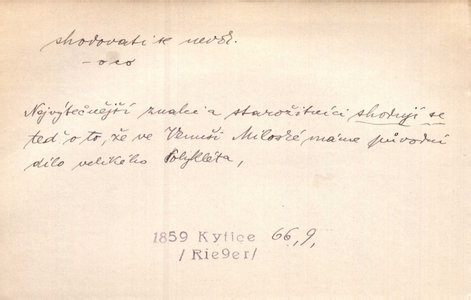 shodovati se nedok.
– oco
Nejvýtečnější znalci a starožitníci shodují se
teď o to, že ve Venuši Miloské máme původní
dílo velikého Polykléta,
1859 Kytice 66,9,
/Rieger/